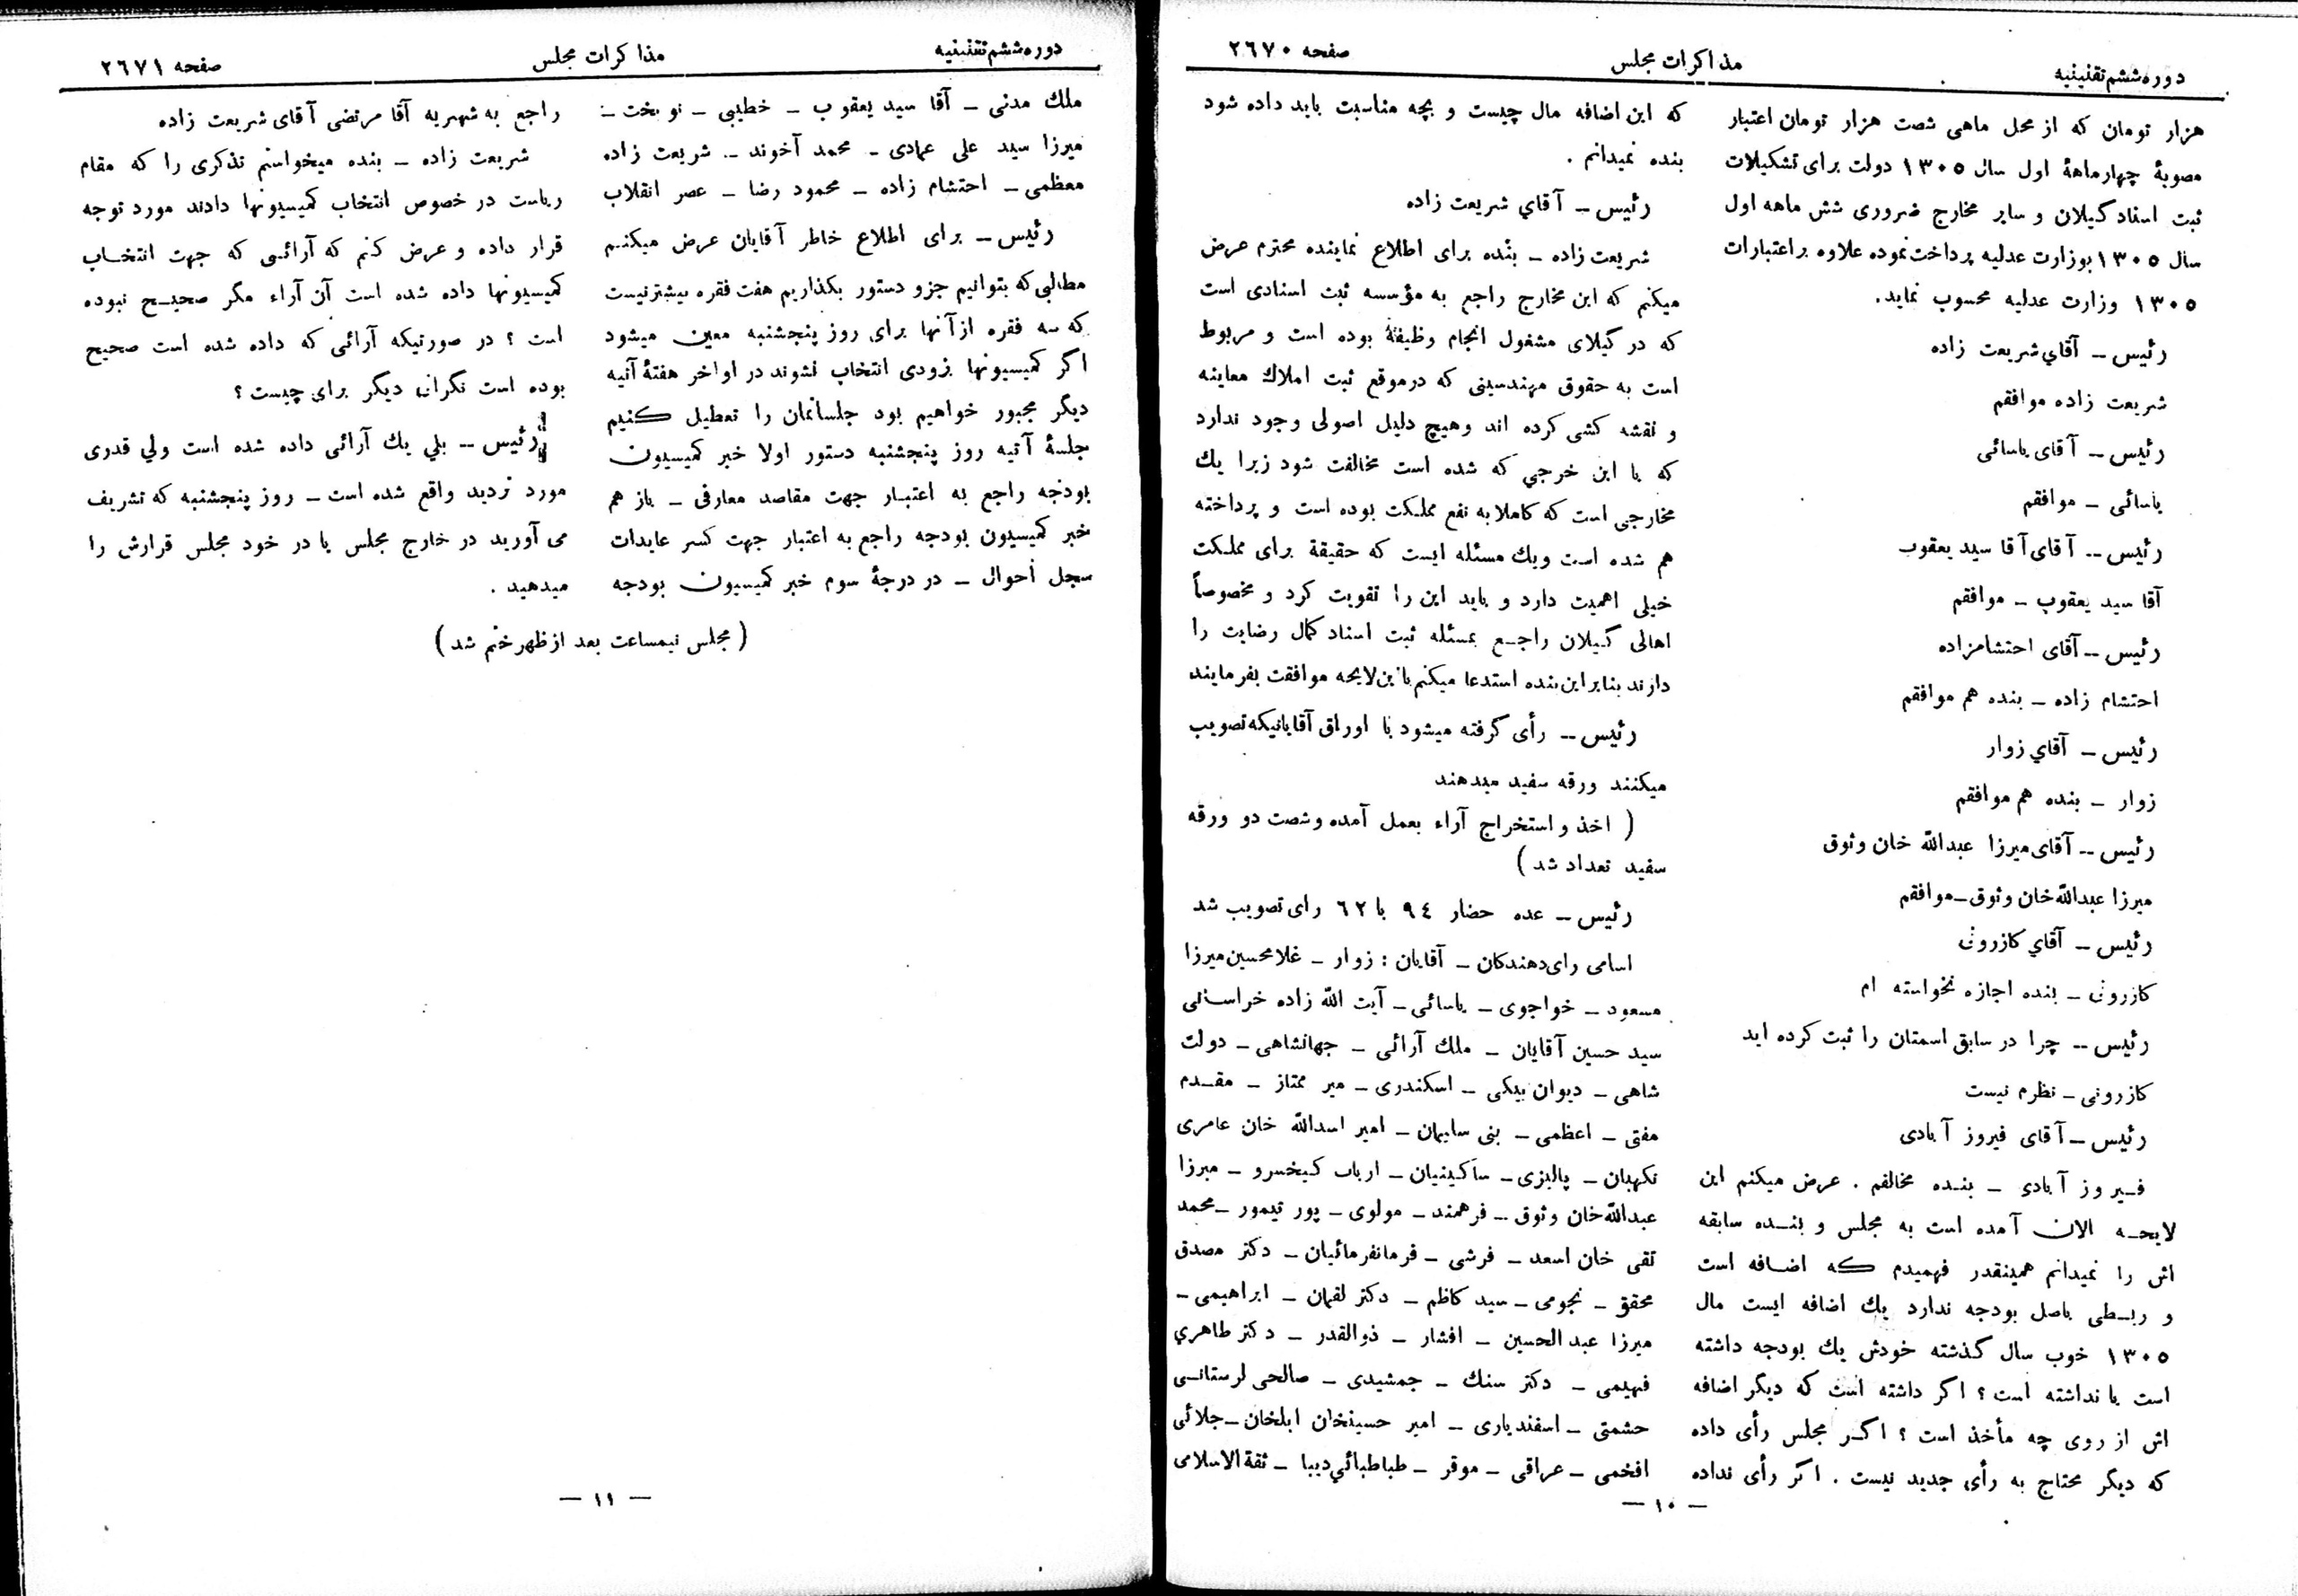 دوره ششم تقنینیه
مذاکرات مجلس
صفحه ۲۶۷۰
هزار تومان که از محل ماهی شصت هزار تومان اعتبار
مصوبهٔ چهارماههٔ اول سال ۱۳۰۵ دولت برای تشکیلات
ثبت اسناد گیلان و سایر مخارج ضروری شش ماهه اول
سال ۱۳۰۵ بوزارت عدلیه پرداخت نموده علاوه بر اعتبارات
۱۳۰۵ وزارت عدلیه محسوب نماید.
رئیس – آقای شریعت زاده
شریعت زاده موافقم
رئیس – آقای یاسائی
یاسائی – موافقم
رئیس – آقای آقا سید یعقوب
آقا سید یعقوب – موافقم
رئیس – آقای احتشامزاده
احتشام زاده – بنده هم موافقم
رئیس – آقای زوار
زوار – بنده هم موافقم
رئیس – آقای میرزا عبدالله خان وثوق
میرزا عبدالله خان وثوق – موافقم
رئیس – آقای کازرونی
کازرونی – بنده اجازه نخواسته ام
رئیس – چرا در سابق اسمتان را ثبت کرده اید
کازرونی – نظرم نیست
رئیس – آقای فیروز آبادی
فیروز آبادی – بنده مخالفم . عرض میکنم این
لایحه الان آمده است به مجلس و بنده سابقه
اش را نمیدانم همینقدر فهمیدم که اضافه است
و ربطی باصل بودجه ندارد یك اضافه ایست مال
۱۳۰۵ خوب سال گذشته خودش یك بودجه داشته
است یا نداشته است ؟ اگر داشته است که دیگر اضافه
اش از روی چه مأخذ است ؟ اگر مجلس رأی داده
که دیگر محتاج به رأی جدید نیست . اگر رأی نداده
که این اضافه مال چیست و بچه مناسبت باید داده شود
بنده نمیدانم .
رئیس – آقای شریعت زاده
شریعت زاده – بنده برای اطلاع نماینده محترم عرض
میکنم که این مخارج راجع به مؤسسه ثبت اسنادی است
که در گیلای مشغول انجام وظیفهٔ بوده است و مربوط
است به حقوق مهندسینی که درموقع ثبت املاك معاینه
و نقشه کشی کرده اند و هیچ دلیل اصولی وجود ندارد
که با این خرجی که شده است مخالفت شود زیرا یك
مخارجی است که کاملا به نفع مملکت بوده است و پرداخته
هم شده است ویك مسئله ایست که حقیقة برای مملکت
خیلی اهمیت دارد و باید این را تقویت کرد و مخصوصاً
اهالی گیلان راجع بمسئله ثبت اسناد کمال رضایت را
دارند بنابراین بنده استدعا میکنم باین لایحه موافقت بفرمایند
رئیس – رأی گرفته میشود با اوراق آقایانیکه تصویب
میکنند ورقه سفید میدهند
( اخذ و استخراج آراء بعمل آمده و شصت دو ورقه
سفید تعداد شد )
رئیس – عده حضار ۹۴ با ۶۲ رای تصویب شد
اسامی رای دهندگان – آقایان : زوار – غلامحسین میرزا
مسعود – خواجوی – یاسائی – آیت الله زاده خراسانی
سید حسین آقایان – ملك آرائی – جهانشاهی – دولت
شاهی – دیوان بیکی – اسکندری – میر ممتاز – مقدم
مفتی – اعظمی – بنی سلیمان – امیر اسدالله خان عامری
نگهبان – پالیزی – ساکینیان – ارباب کیخسرو – میرزا
عبدالله خان وثوق – فرهمند – مولوی – پور تیمور – محمد
تقی خان اسعد – فرشی – فرمانفرمائیان – دکتر مصدق
محقق – نجومی – سید کاظم – دکتر لقمان – ابراهیمی –
میرزا عبدالحسین – افشار – ذوالقدر – دکتر طاهری
فهیمی – دکتر سنك – جمشیدی – صالحی لرستانی
حشمتی – اسفندیاری – امیر حسینخان ایلخان – جلائی
افخمی – عراقی – موقر – طباطبائی دیبا – ثقة الاسلامی
– ۱۰ –
دوره ششم تقنینیه
مذاکرات مجلس
صفحه ۲۶۷۱
ملك مدنی – آقا سید یعقوب – خطیبی – نوبخت –
میرزا سید علی عمادی – محمد آخوند – شریعت زاده
معظمی – احتشام زاده – محمود رضا – عصر انقلاب
رئیس – برای اطلاع خاطر آقایان عرض میکنم
مطالبی که بتوانیم جزو دستور بگذاریم هفت فقره بیشترنیست
که سه فقره از آنها برای روز پنجشنبه معین میشود
اگر کمیسیونها بزودی انتخاب نشوند در اواخر هفتهٔ آتیه
دیگر مجبور خواهیم بود جلساتمان را تعطیل کنیم
جلسهٔ آتیه روز پنجشنبه دستور اولا خبر کمیسیون
بودجه راجع به اعتبار جهت مقاصد معارفی – باز هم
خبر کمیسیون بودجه راجع به اعتبار جهت کسر عایدات
سجل احوال – در درجهٔ سوم خبر کمیسیون بودجه
راجع به شهریه آقا مرتضی آقای شریعت زاده
شریعت زاده – بنده میخواستم تذکری را که مقام
ریاست در خصوص انتخاب کمیسیونها دادند مورد توجه
قرار داده و عرض کنم که آرائی که جهت انتخاب
کمیسیونها داده شده است آن آراء مگر صحیح نبوده
است ؟ در صورتیکه آرائی که داده شده است صحیح
بوده است نگرانی دیگر برای چیست ؟
رئیس – بلی یك آرائی داده شده است ولی قدری
مورد تردید واقع شده است – روز پنجشنبه که تشریف
می آورید در خارج مجلس یا در خود مجلس قرارش را
میدهید .
( مجلس نیمساعت بعد از ظهر ختم شد )
– ۱۱ –